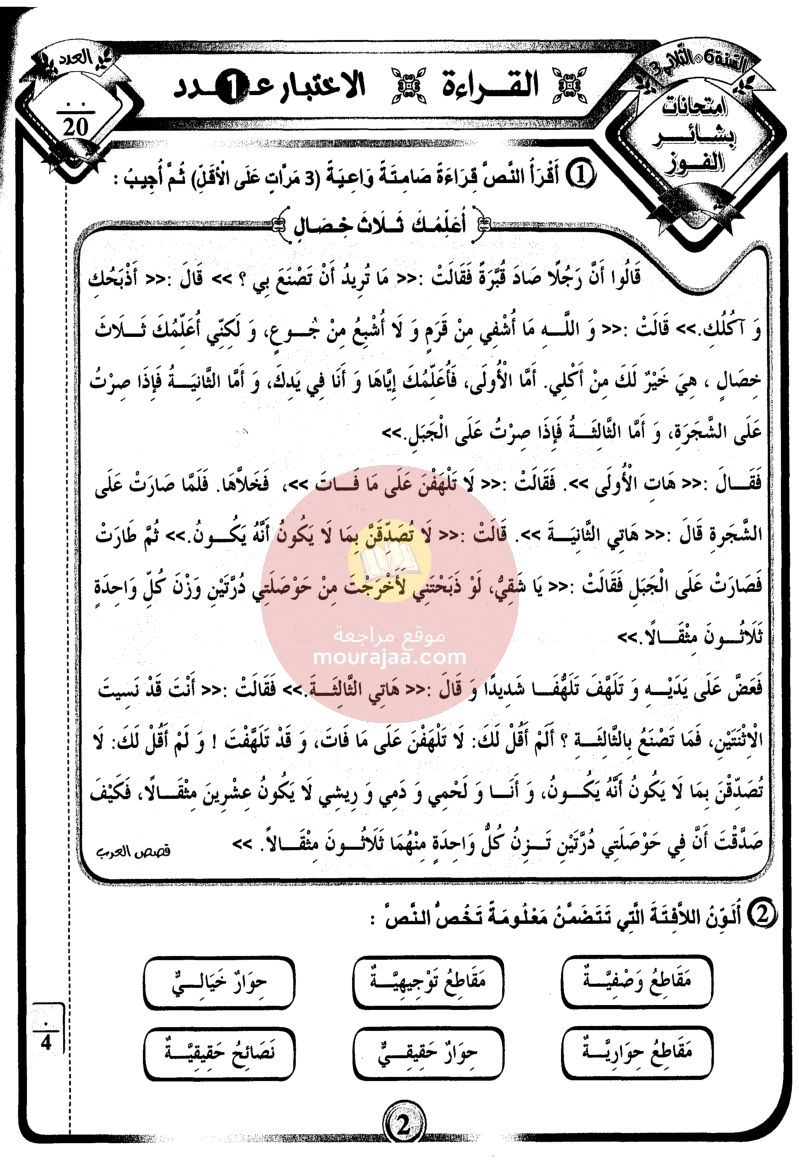 السّنة 6 - الثّلاثي 3
امتحانات
بشائر
الفوز
القراءة
الاختبار عدد 1
العدد
..
20
1 أَقْرَأُ النَّصَّ قِرَاءَةً صَامِتَةً وَاعِيَةً (3 مَرَّاتٍ عَلَى الْأَقَلِّ) ثُمَّ أُجِيبُ :
أُعَلِّمُكَ ثَلَاثَ خِصَالٍ
قَالُوا أَنَّ رَجُلًا صَادَ قُبَّرَةً فَقَالَتْ :<< مَا تُرِيدُ أَنْ تَصْنَعَ بِي ؟ >> قَالَ :<< أَذْبَحُكِ
وَ آكُلُكِ.>> قَالَتْ :<< وَ اللَّهِ مَا أُشْفِي مِنْ قَرَمٍ وَ لَا أُشْبِعُ مِنْ جُوعٍ، وَ لَكِنِّي أُعَلِّمُكَ ثَلَاثَ
خِصَالٍ ، هِيَ خَيْرٌ لَكَ مِنْ أَكْلِي. أَمَّا الْأُولَى، فَأُعَلِّمُكَ إِيَّاهَا وَ أَنَا فِي يَدِكَ، وَ أَمَّا الثَّانِيَةُ فَإِذَا صِرْتُ
عَلَى الشَّجَرَةِ، وَ أَمَّا الثَّالِثَةُ فَإِذَا صِرْتُ عَلَى الْجَبَلِ.>>
فَقَالَ :<< هَاتِ الْأُولَى >>. فَقَالَتْ :<< لَا تَلْهَفْنَ عَلَى مَا فَاتَ >>، فَخَلَّاهَا. فَلَمَّا صَارَتْ عَلَى
الشَّجَرةِ قَالَ :<< هَاتِي الثَّانِيَةَ >>. قَالَتْ :<< لَا تُصَدِّقَنَّ بِمَا لَا يَكُونُ أَنَّهُ يَكُونُ.>> ثُمَّ طَارَتْ
فَصَارَتْ عَلَى الْجَبَلِ فَقَالَتْ :<< يَا شَقِيُّ، لَوْ ذَبَحْتَنِي لَأَخْرَجْتَ مِنْ حَوْصَلَتِي دُرَّتَيْنِ وَزْنَ كُلِّ وَاحِدَةٍ
ثَلَاثُونَ مِثْقَالًا.>>
فَعَضَّ عَلَى يَدَيْهِ وَ تَلَهَّفَ تَلَهُّفًا شَدِيدًا وَ قَالَ :<< هَاتِي الثَّالِثَةَ.>> فَقَالَتْ :<< أَنْتَ قَدْ نَسِيتَ
الْاِثْنَتَيْنِ، فَمَا تَصْنَعُ بِالثَّالِثَةِ ؟ أَلَمْ أَقُلْ لَكَ: لَا تَلْهَفْنَ عَلَى مَا فَاتَ، وَ قَدْ تَلَهَّفْتَ ! وَ لَمْ أَقُلْ لَكَ: لَا
تُصَدِّقْنَ بِمَا لَا يَكُونُ أَنَّهُ يَكُونُ، وَ أَنَا وَ لَحْمِي وَ دَمِي وَ رِيشِي لَا يَكُونُ عِشْرِينَ مِثْقَالًا، فَكَيْفَ
صَدَّقْتَ أَنَّ فِي حَوْصَلَتِي دُرَّتَيْنِ تَزِنُ كُلُّ وَاحِدَةٍ مِنْهُمَا ثَلَاثُونَ مِثْقَالًا. >>
قصص العرب
موقع مراجعة
mourajaa.com
2 أُلَوِّنُ اللَّافِتَةَ الَّتِي تَتَضَمَّنُ مَعْلُومَةً تَخُصُّ النَّصَّ :
مَقَاطِعُ وَصْفِيَّةٌ
مَقَاطِعُ تَوْجِيهِيَّةٌ
حِوَارٌ خَيَالِيٌّ
مَقَاطِعُ حِوَارِيَّةٌ
حِوَارٌ حَقِيقِيٌّ
نَصَائِحُ حَقِيقِيَّةٌ
.
4
2